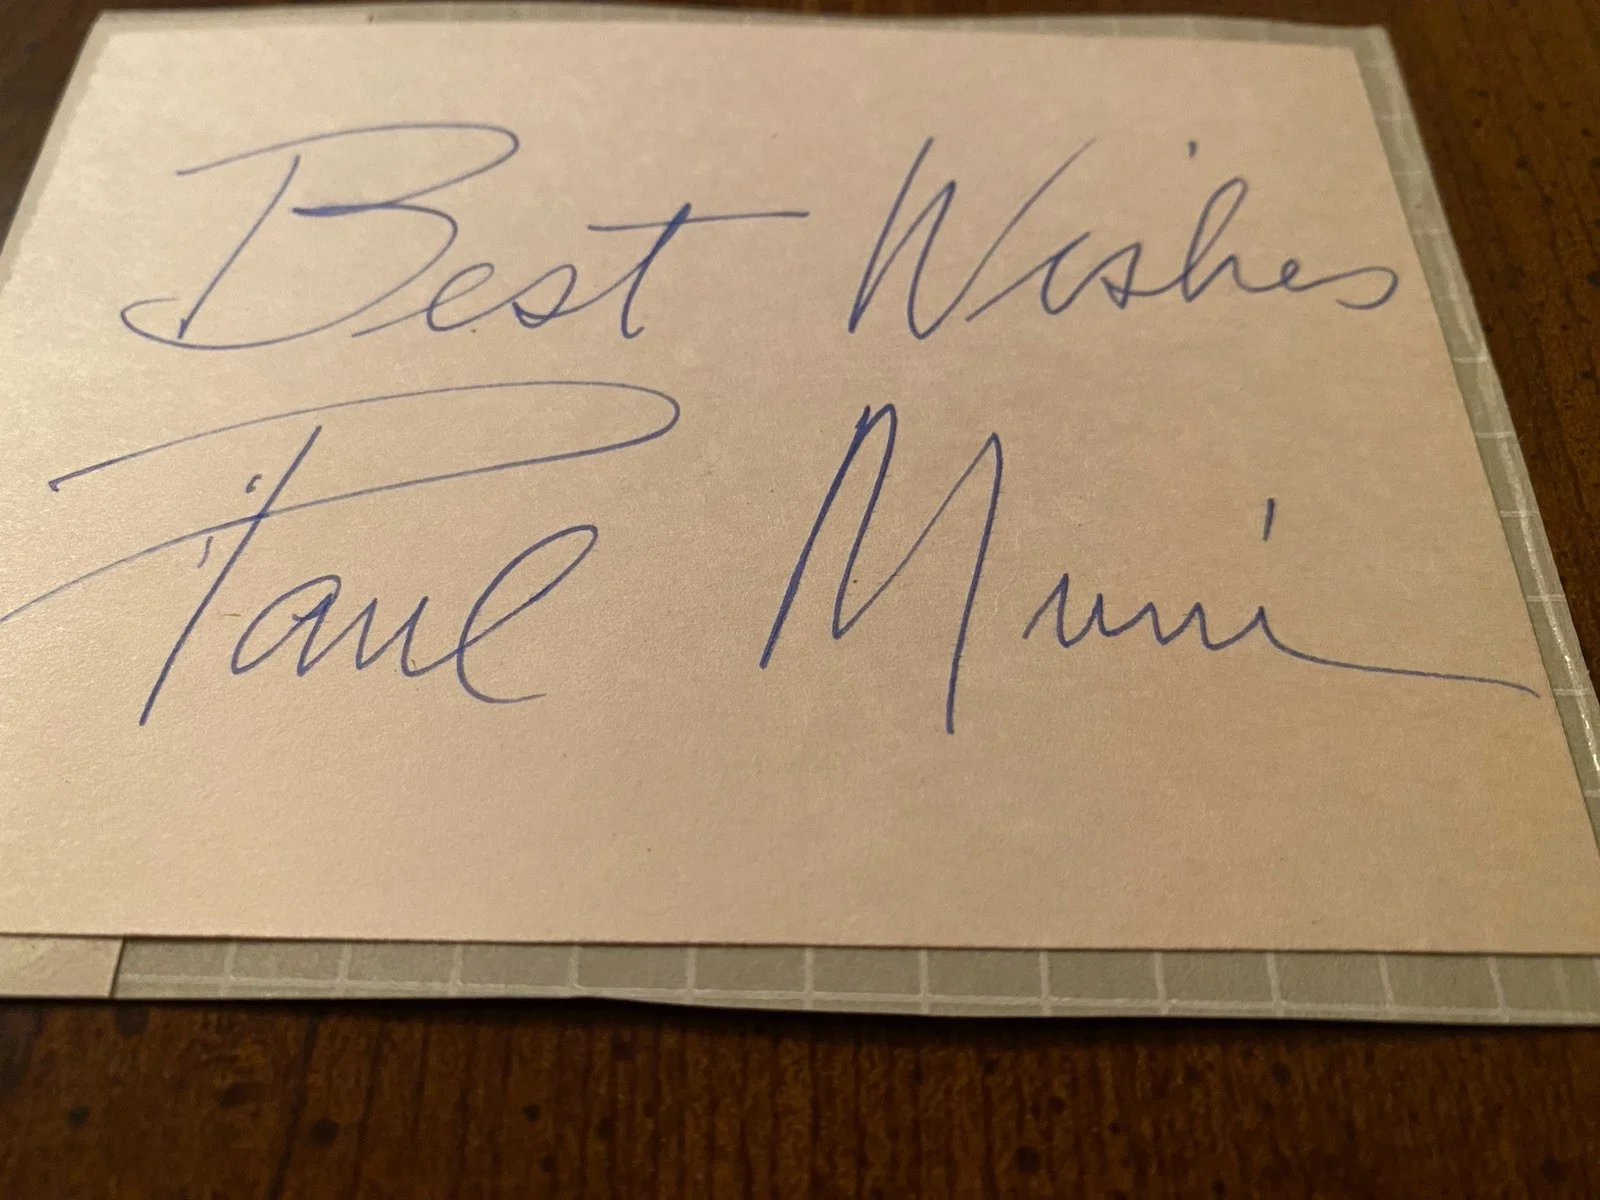 Best Wishes
Paul Muni